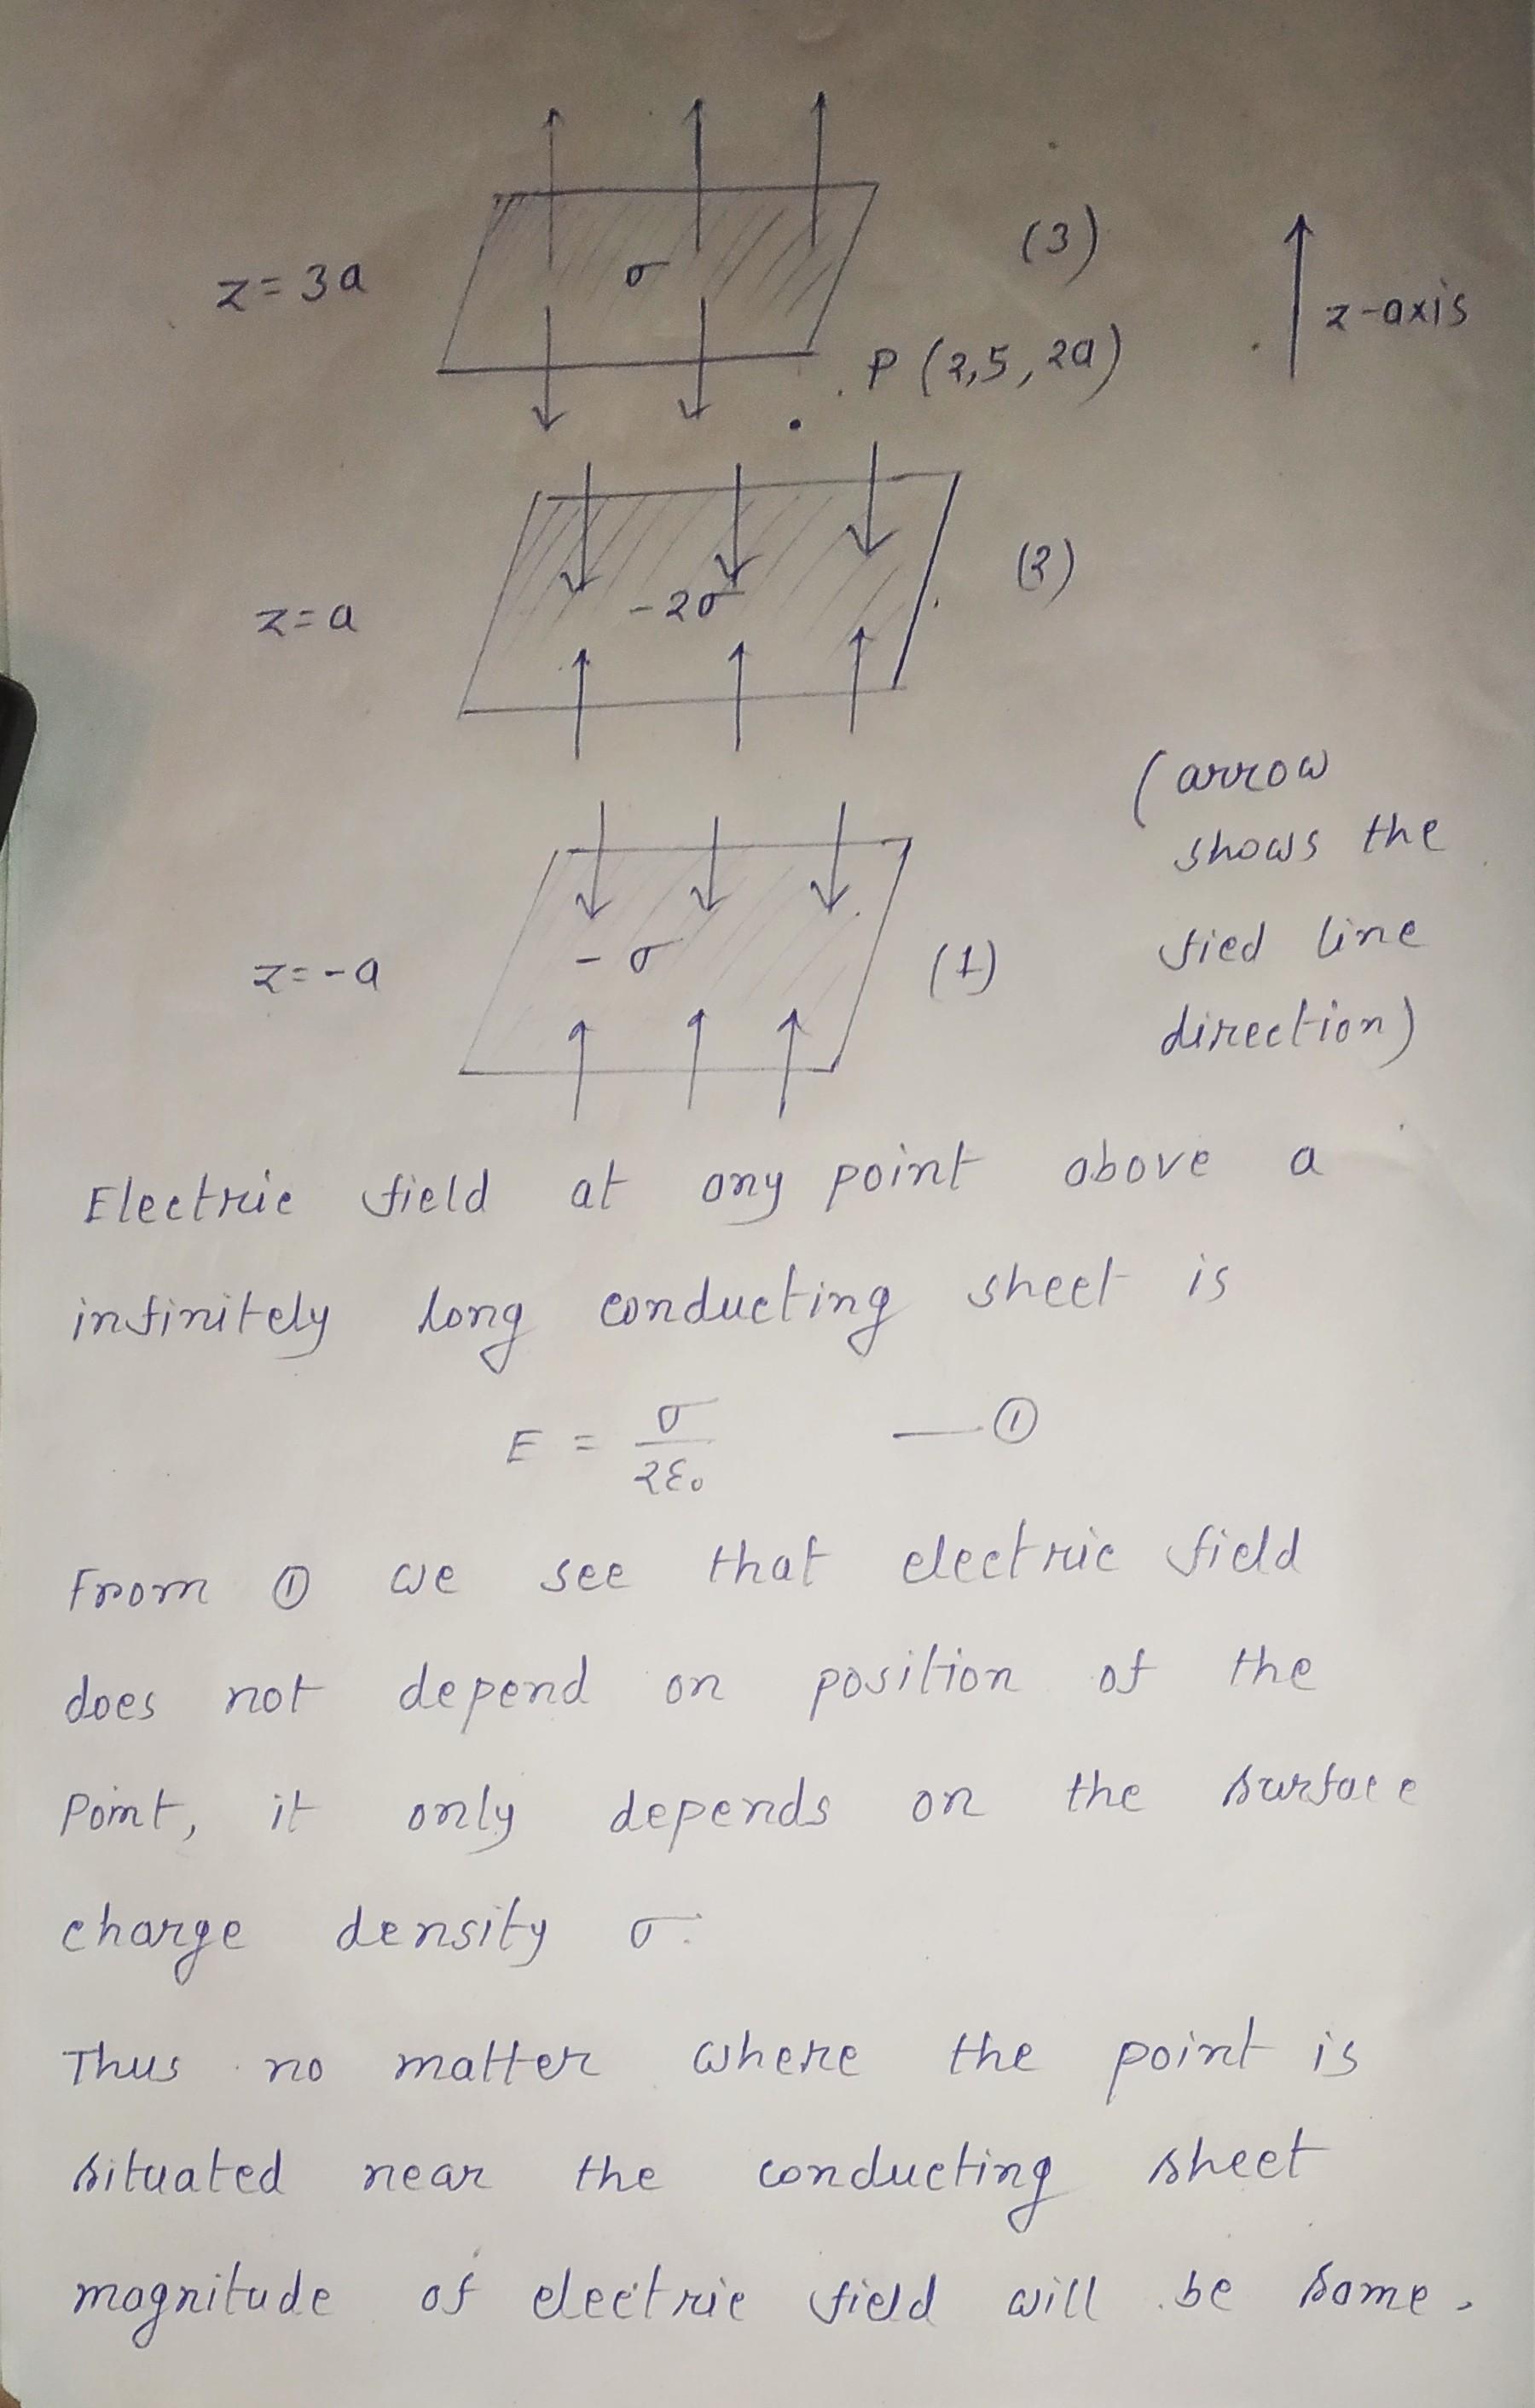 (3)
z = 3a
σ
z-axis
P (2,5, 2a)
(2)
z = a
-2σ
(arrow
shows the
fied line
direction)
z = -a
- σ
(1)
Electric field at any point above a
infinitely long conducting sheet is
E = σ/2ε₀ —①
From ① we see that electric field
does not depend on position of the
Point, it only depends on the surface
charge density σ.
Thus no matter where the point is
situated near the conducting sheet
magnitude of electric field will be same.